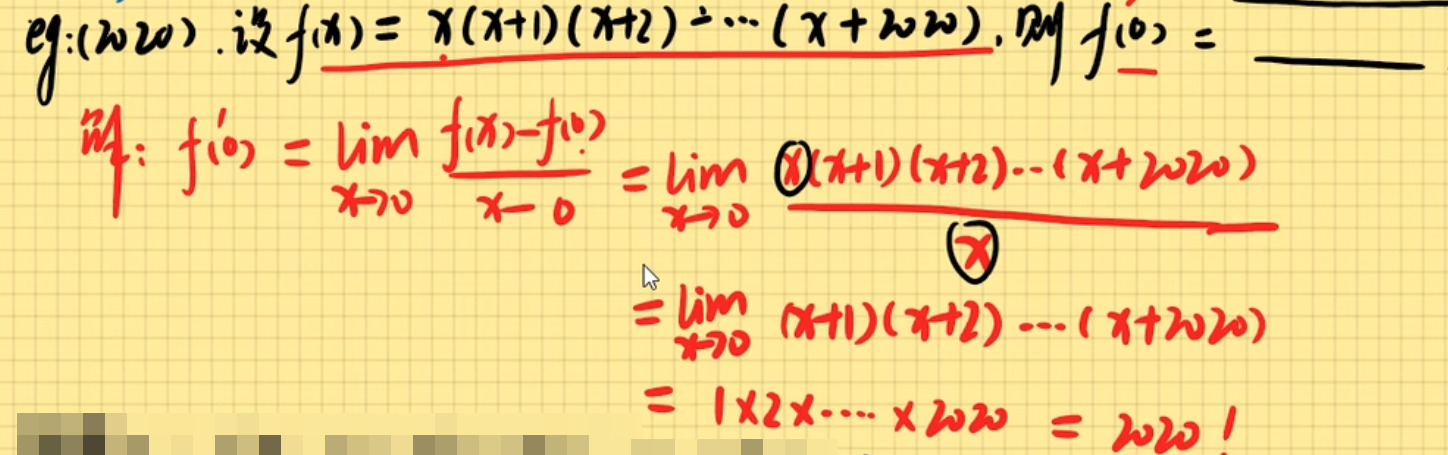 eg:(2020).设f(x)= x(x+1)(x+2)·…(x+2020),则f'(0)=____
解: f'(0) = lim x→0 f(x)-f(0) / x-0 = lim x→0 x(x+1)(x+2)…(x+2020) / x
= lim x→0 (x+1)(x+2)…(x+2020)
= 1×2×…×2020 = 2020!